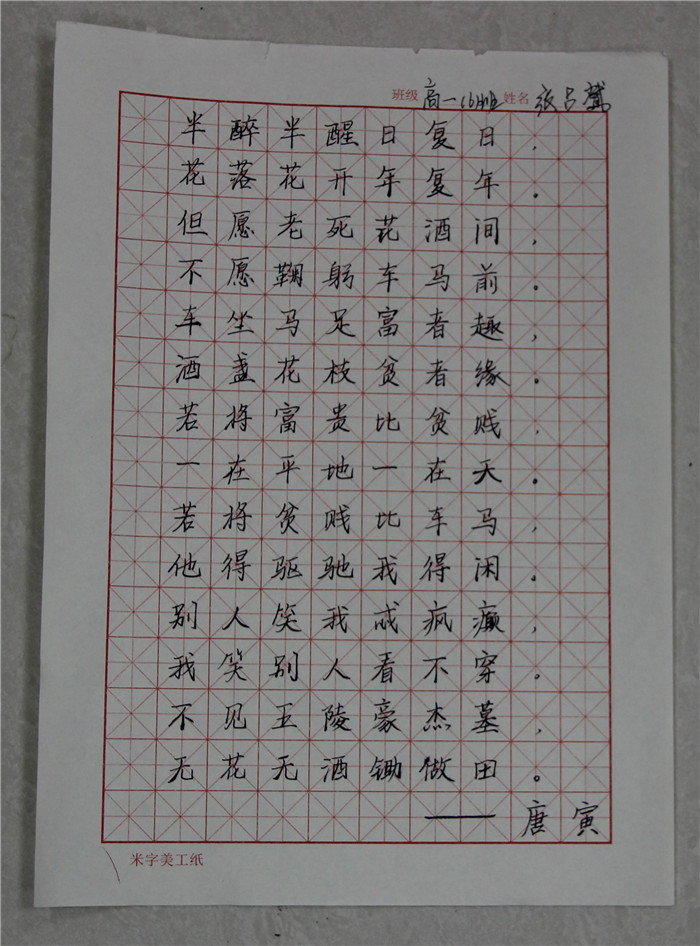 班级 高一16班 姓名 张占
半醉半醒日复日，
花落花开年复年。
但愿老死花酒间，
不愿鞠躬车马前。
车坐马足富者趣，
酒盏花枝贫者缘。
若将富贵比贫贱，
一在平地一在天。
若将贫贱比车马，
他得驱驰我得闲。
别人笑我忒疯癫，
我笑别人看不穿。
不见五陵豪杰墓，
无花无酒锄做田。
——唐寅
米字美工纸